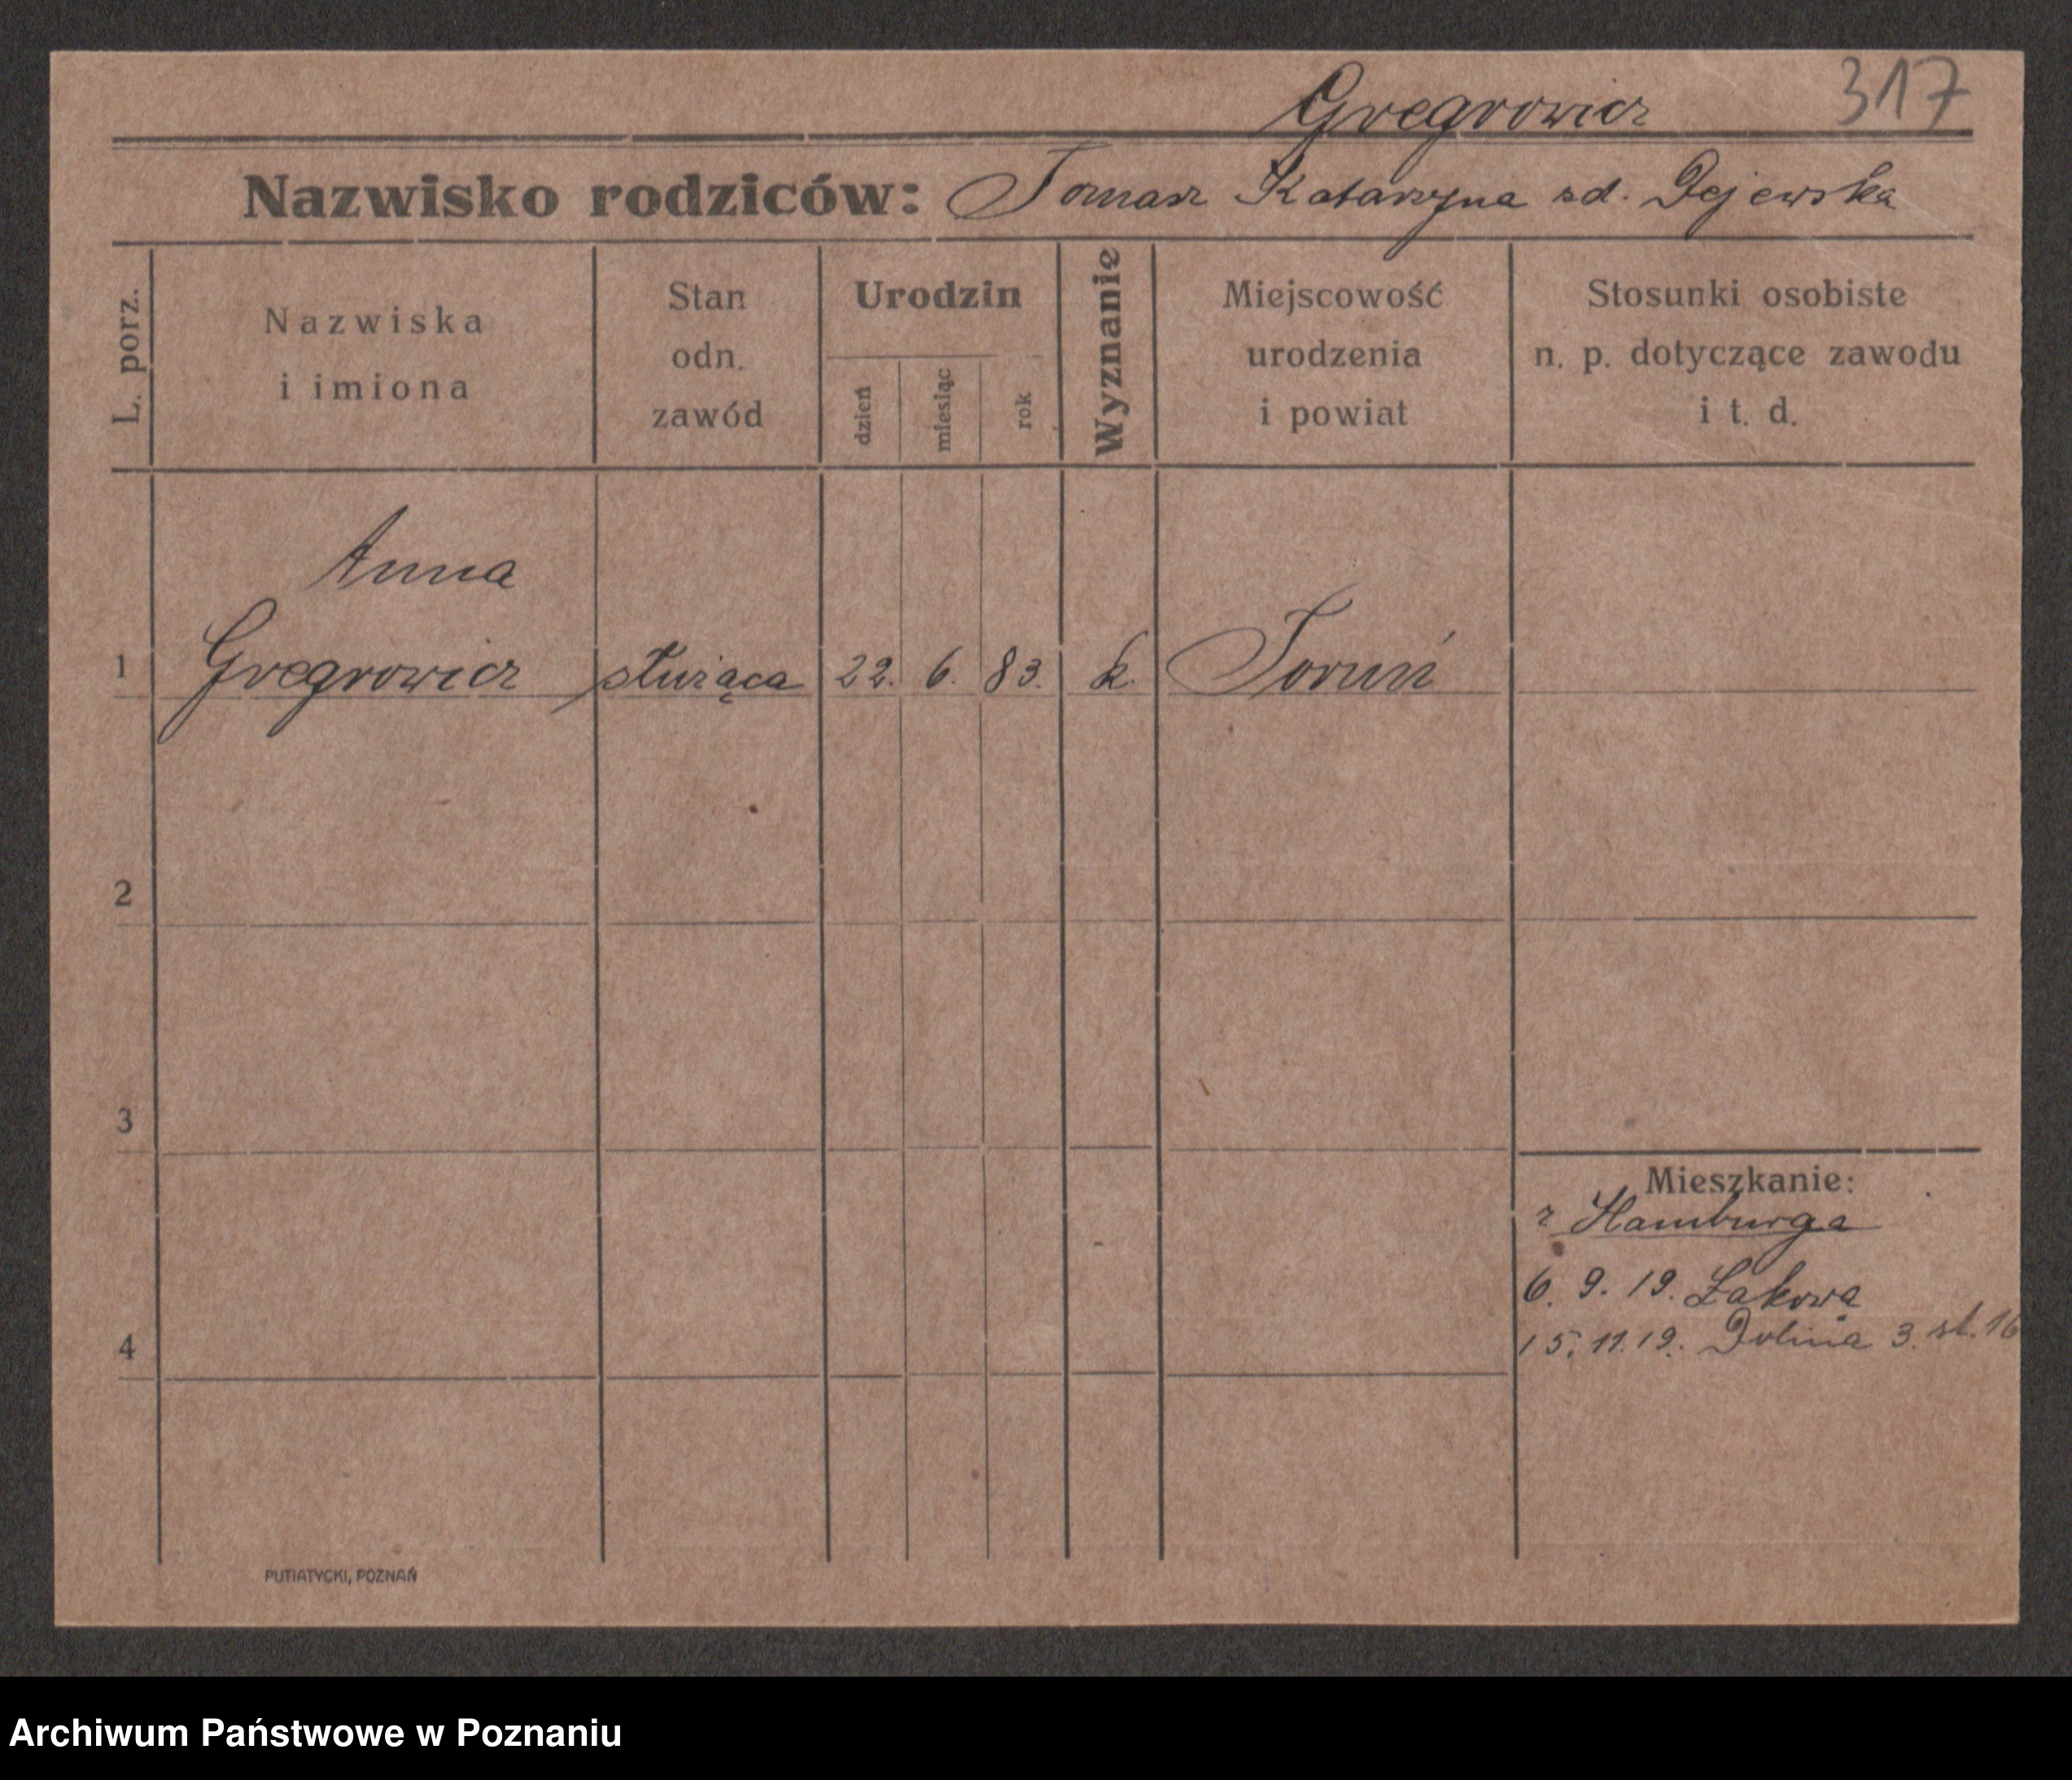 Gregrowicz 317
Nazwisko rodziców: Tomasz Katarzyna zd. Dejewska
L. porz.
Nazwiska
i imiona
Stan
odn.
zawód
Urodzin
dzień
miesiąc
rok
Wyznanie
Miejscowość
urodzenia
i powiat
Stosunki osobiste
n. p. dotyczące zawodu
i t. d.
Anna
1 Gregrowicz służąca 22. 6. 83. k. Toruń
2
3
Mieszkanie:
z Hamburga
6. 9. 19. Łąkowa
4
15. 11. 19. Dolina 3. st. 16
PUTIATYCKI, POZNAŃ
Archiwum Państwowe w Poznaniu